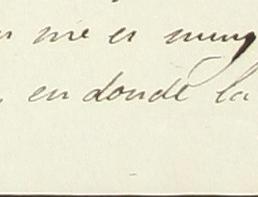 me es muy
, en donde la